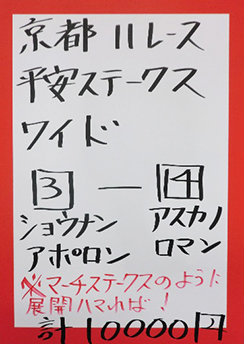 京都11レース
平安ステークス
ワイド
3 — 14
ショウナンアポロン アスカノロマン
※マーチステークスのように
展開ハマれば!
計10000円